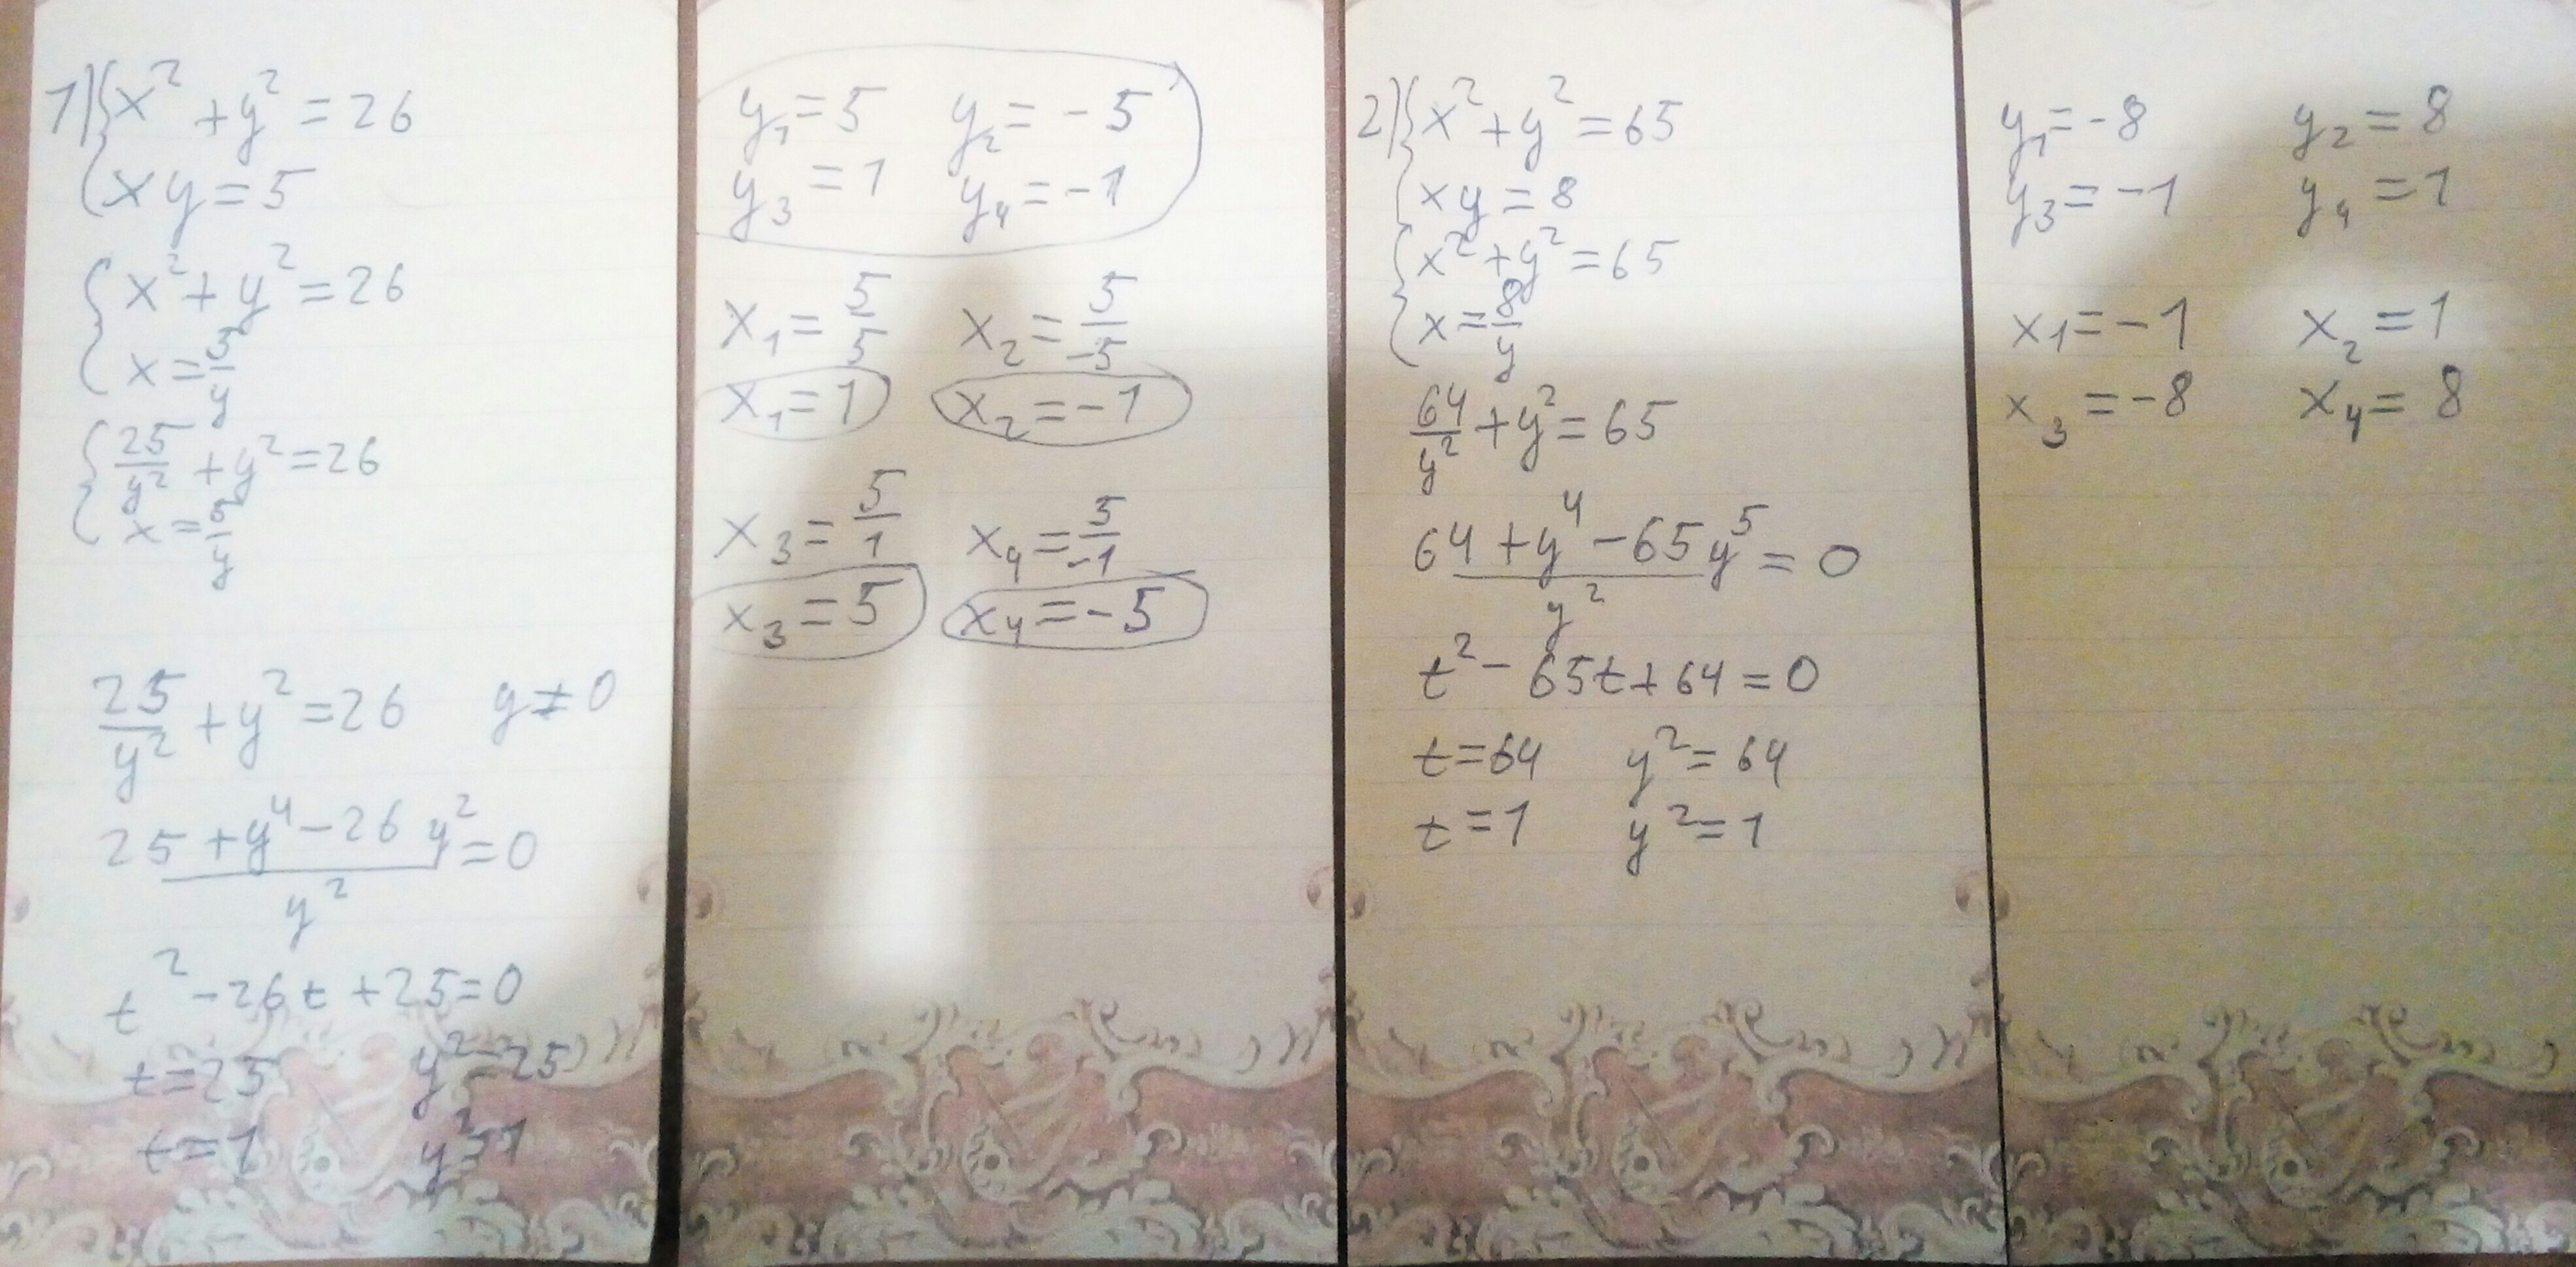 1) { x² + y² = 26
{ xy = 5
{ x² + y² = 26
{ x = 5/y
{ 25/y² + y² = 26
{ x = 5/y
25/y² + y² = 26   y ≠ 0
(25 + y⁴ - 26y²)/y² = 0
t² - 26t + 25 = 0
t = 25   y² = 25
t = 1   y² = 1
y₁ = 5   y₂ = -5
y₃ = 1   y₄ = -1
x₁ = 5/5   x₂ = 5/-5
x₁ = 1   x₂ = -1
x₃ = 5/1   x₄ = 5/-1
x₃ = 5   x₄ = -5
2) { x² + y² = 65
{ xy = 8
{ x² + y² = 65
{ x = 8/y
64/y² + y² = 65
(64 + y⁴ - 65y⁵)/y² = 0
t² - 65t + 64 = 0
t = 64   y² = 64
t = 1   y² = 1
y₁ = -8   y₂ = 8
y₃ = -1   y₄ = 1
x₁ = -1   x₂ = 1
x₃ = -8   x₄ = 8